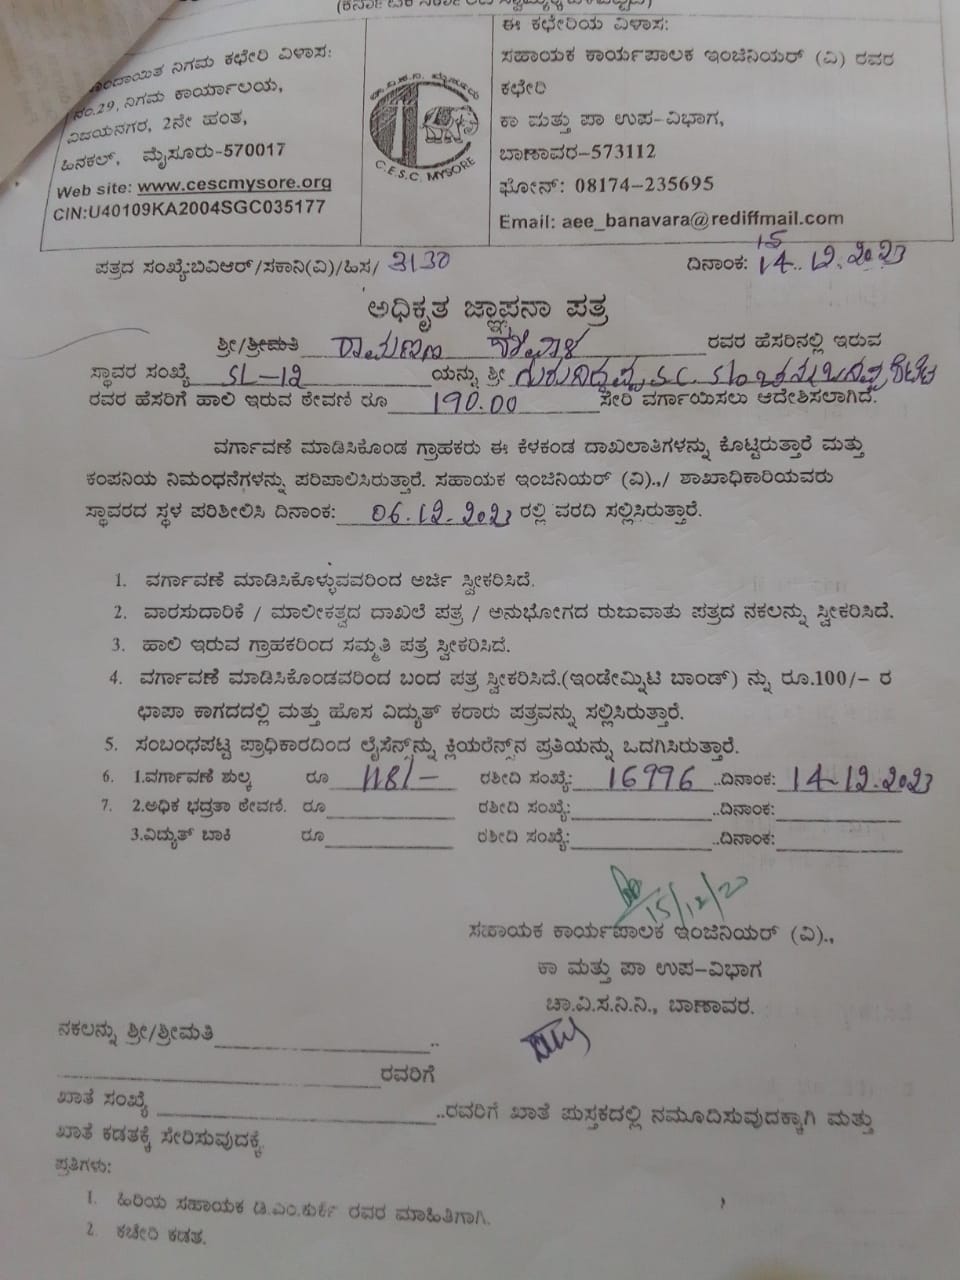 (ಕರ್ನಾಟಕ ಸರ್ಕಾರದ ಸ್ವಾಮ್ಯಕ್ಕೆ ಒಳಪಟ್ಟಿದೆ)
ನಿಗಮ ಕಛೇರಿ ವಿಳಾಸ:
ನಂ.29, ನಿಗಮ ಕಾರ್ಯಾಲಯ,
ವಿಜಯನಗರ, 2ನೇ ಹಂತ,
ಹಿನಕಲ್, ಮೈಸೂರು-570017
Web site: www.cescmysore.org
CIN:U40109KA2004SGC035177
C.E.S.C. MYSORE
ಈ ಕಛೇರಿಯ ವಿಳಾಸ:
ಸಹಾಯಕ ಕಾರ್ಯಪಾಲಕ ಇಂಜಿನಿಯರ್ (ವಿ) ರವರ
ಕಛೇರಿ
ಕಾ ಮತ್ತು ಪಾ ಉಪ-ವಿಭಾಗ,
ಬಾಣಾವರ-573112
ಫೋನ್: 08174-235695
Email: aee_banavara@rediffmail.com
ಪತ್ರದ ಸಂಖ್ಯೆ:ಬಿವಿಆರ್/ಸಕಾನಿ(ವಿ)/ಹಿಸ/ 3130 ದಿನಾಂಕ: 15 14.12.2023
ಅಧಿಕೃತ ಜ್ಞಾಪನಾ ಪತ್ರ
ಶ್ರೀ/ಶ್ರೀಮತಿ ರಾಮಣ್ಣ ರವರ ಹೆಸರಿನಲ್ಲಿ ಇರುವ
ಸ್ಥಾವರ ಸಂಖ್ಯೆ SL-12 ಯನ್ನು ಶ್ರೀ ಗುರುಸಿದ್ದಪ್ಪ S.C. S/o
ರವರ ಹೆಸರಿಗೆ ಹಾಲಿ ಇರುವ ಠೇವಣಿ ರೂ 190.00 ಸೇರಿ ವರ್ಗಾಯಿಸಲು ಆದೇಶಿಸಲಾಗಿದೆ.
ವರ್ಗಾವಣೆ ಮಾಡಿಸಿಕೊಂಡ ಗ್ರಾಹಕರು ಈ ಕೆಳಕಂಡ ದಾಖಲಾತಿಗಳನ್ನು ಕೊಟ್ಟಿರುತ್ತಾರೆ ಮತ್ತು
ಕಂಪನಿಯ ನಿಮಂಧನೆಗಳನ್ನು ಪರಿಪಾಲಿಸಿರುತ್ತಾರೆ. ಸಹಾಯಕ ಇಂಜಿನಿಯರ್ (ವಿ).,/ ಶಾಖಾಧಿಕಾರಿಯವರು
ಸ್ಥಾವರದ ಸ್ಥಳ ಪರಿಶೀಲಿಸಿ ದಿನಾಂಕ: 06.12.2023 ರಲ್ಲಿ ವರದಿ ಸಲ್ಲಿಸಿರುತ್ತಾರೆ.
1. ವರ್ಗಾವಣೆ ಮಾಡಿಸಿಕೊಳ್ಳುವವರಿಂದ ಅರ್ಜಿ ಸ್ವೀಕರಿಸಿದೆ.
2. ವಾರಸುದಾರಿಕೆ / ಮಾಲೀಕತ್ವದ ದಾಖಲೆ ಪತ್ರ / ಅನುಭೋಗದ ರುಜುವಾತು ಪತ್ರದ ನಕಲನ್ನು ಸ್ವೀಕರಿಸಿದೆ.
3. ಹಾಲಿ ಇರುವ ಗ್ರಾಹಕರಿಂದ ಸಮ್ಮತಿ ಪತ್ರ ಸ್ವೀಕರಿಸಿದೆ.
4. ವರ್ಗಾವಣೆ ಮಾಡಿಸಿಕೊಂಡವರಿಂದ ಬಂದ ಪತ್ರ ಸ್ವೀಕರಿಸಿದೆ.(ಇಂಡೇಮ್ನಿಟಿ ಬಾಂಡ್) ನ್ನು ರೂ.100/- ರ
ಛಾಪಾ ಕಾಗದದಲ್ಲಿ ಮತ್ತು ಹೊಸ ವಿದ್ಯುತ್ ಕರಾರು ಪತ್ರವನ್ನು ಸಲ್ಲಿಸಿರುತ್ತಾರೆ.
5. ಸಂಬಂಧಪಟ್ಟ ಪ್ರಾಧಿಕಾರದಿಂದ ಲೈಸೆನ್ಸ್‌ನ್ನು ಕ್ಲಿಯರೆನ್ಸ್‌ನ ಪ್ರತಿಯನ್ನು ಒದಗಿಸಿರುತ್ತಾರೆ.
6. 1.ವರ್ಗಾವಣೆ ಶುಲ್ಕ ರೂ 118/- ರಶೀದಿ ಸಂಖ್ಯೆ: 16996 ..ದಿನಾಂಕ: 14-12.2023
7. 2.ಅಧಿಕ ಭದ್ರತಾ ಠೇವಣಿ. ರೂ ರಶೀದಿ ಸಂಖ್ಯೆ: ..ದಿನಾಂಕ:
3.ವಿದ್ಯುತ್ ಬಾಕಿ ರೂ ರಶೀದಿ ಸಂಖ್ಯೆ: ..ದಿನಾಂಕ:
15/12/23
ಸಹಾಯಕ ಕಾರ್ಯಪಾಲಕ ಇಂಜಿನಿಯರ್ (ವಿ).,
ಕಾ ಮತ್ತು ಪಾ ಉಪ-ವಿಭಾಗ
ಚಾ.ವಿ.ಸ.ನಿ.ನಿ., ಬಾಣಾವರ.
ನಕಲನ್ನು ಶ್ರೀ/ಶ್ರೀಮತಿ ..
ರವರಿಗೆ
ಖಾತೆ ಸಂಖ್ಯೆ ..ರವರಿಗೆ ಖಾತೆ ಪುಸ್ತಕದಲ್ಲಿ ನಮೂದಿಸುವುದಕ್ಕಾಗಿ ಮತ್ತು
ಖಾತೆ ಕಡತಕ್ಕೆ ಸೇರಿಸುವುದಕ್ಕೆ
ಪ್ರತಿಗಳು:
1. ಹಿರಿಯ ಸಹಾಯಕ ಡಿ.ಎಂ.ಕುರ್ಕೆ ರವರ ಮಾಹಿತಿಗಾಗಿ.
2. ಕಚೇರಿ ಕಡತ.